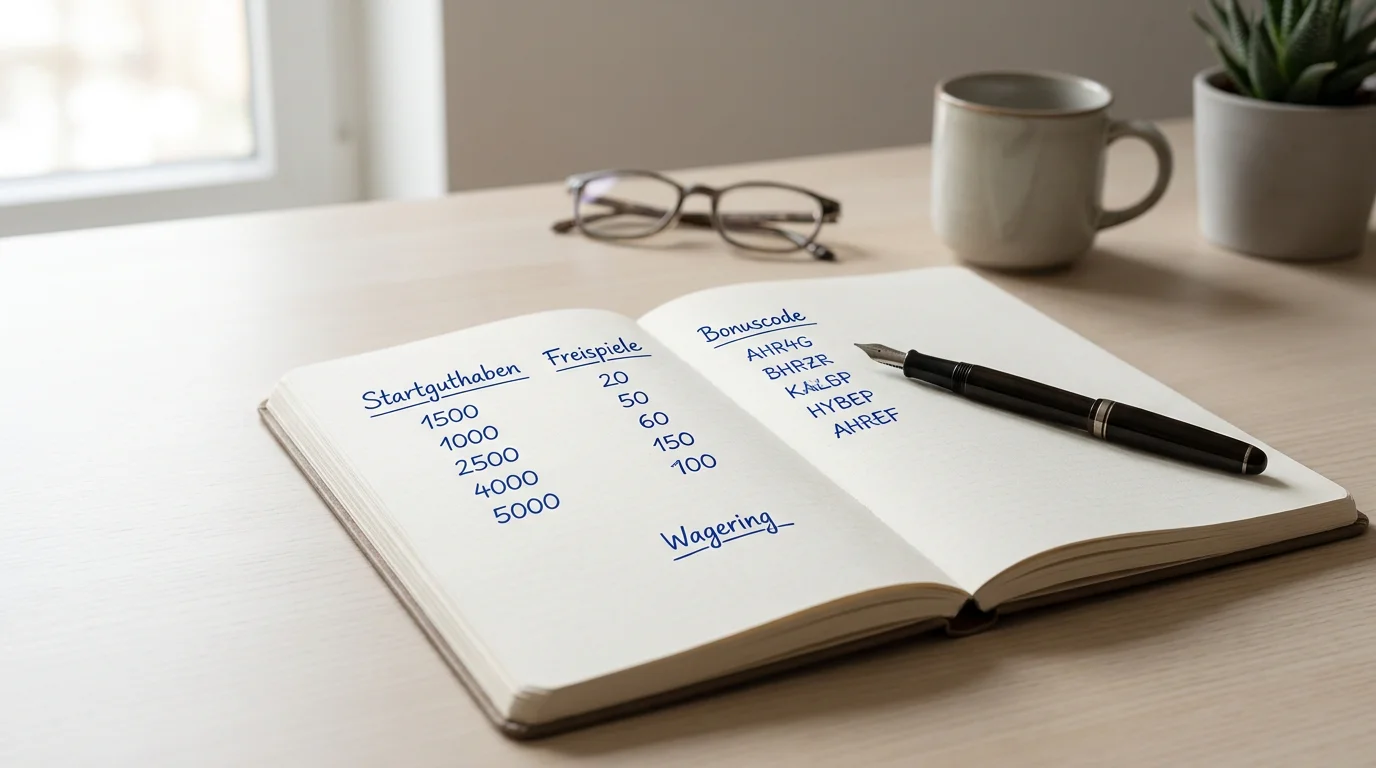 Startguthaben
1500
1000
2500
4000
5000
Freispiele
20
50
60
150
100
Wagering
Bonuscode
AHR4G
BHRZR
HYBEP
AHREF